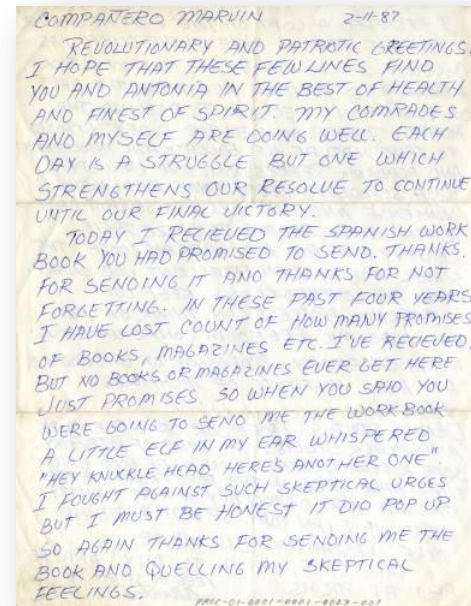 COMPAÑERO MARVIN 2-11-87
REVOLUTIONARY AND PATRIOTIC GREETINGS.
I HOPE THAT THESE FEW LINES FIND
YOU AND ANTONIA IN THE BEST OF HEALTH
AND FINEST OF SPIRIT. MY COMRADES
AND MYSELF ARE DOING WELL. EACH
DAY IS A STRUGGLE BUT ONE WHICH
STRENGTHENS OUR RESOLVE TO CONTINUE
UNTIL OUR FINAL VICTORY.
TODAY I RECIEVED THE SPANISH WORK
BOOK YOU HAD PROMISED TO SEND. THANKS.
FOR SENDING IT AND THANKS FOR NOT
FORGETTING. IN THESE PAST FOUR YEARS
I HAVE LOST COUNT OF HOW MANY PROMISES
OF BOOKS, MAGAZINES ETC. I'VE RECIEVED,
BUT NO BOOKS OR MAGAZINES EVER GET HERE
JUST PROMISES. SO WHEN YOU SAID YOU
WERE GOING TO SEND ME THE WORK BOOK
A LITTLE ELF IN MY EAR WHISPERED
"HEY KNUCKLE HEAD HERE'S ANOTHER ONE".
I FOUGHT AGAINST SUCH SKEPTICAL URGES
BUT I MUST BE HONEST IT DID POP UP.
SO AGAIN THANKS FOR SENDING ME THE
BOOK AND QUELLING MY SKEPTICAL
FEELINGS.